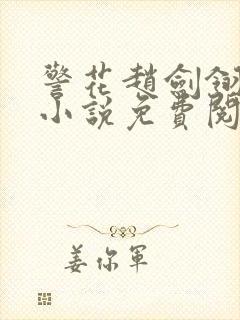 警花趙劍釵
小說免費閱
姜你軍